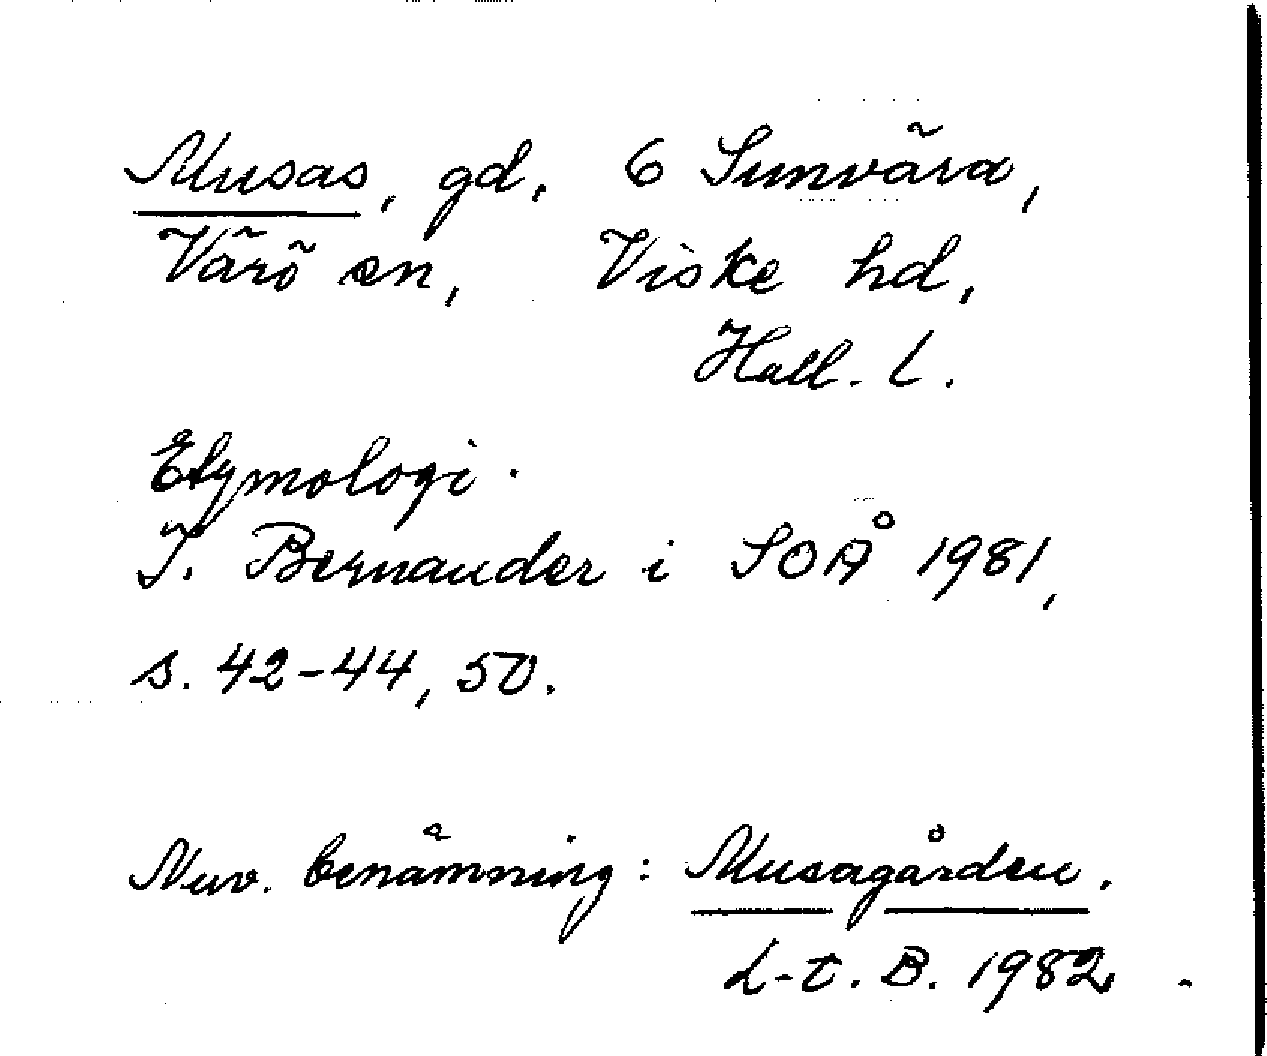 Musas, gd, 6 Sunvära,
Värö sn, Viske hd,
Hall. l.
Etymologi.
I. Bernander i SOÅ 1981,
s. 42-44, 50.
Nuv. benämning: Musagården.
L-t. B. 1982